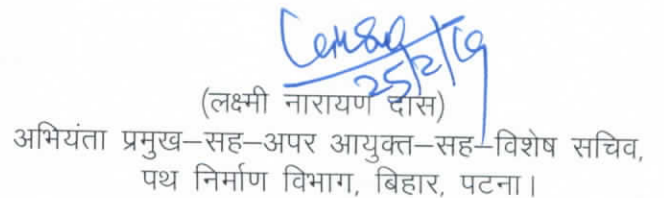 25/2/19
(लक्ष्मी नारायण दास)
अभियंता प्रमुख–सह–अपर आयुक्त–सह–विशेष सचिव,
पथ निर्माण विभाग, बिहार, पटना।